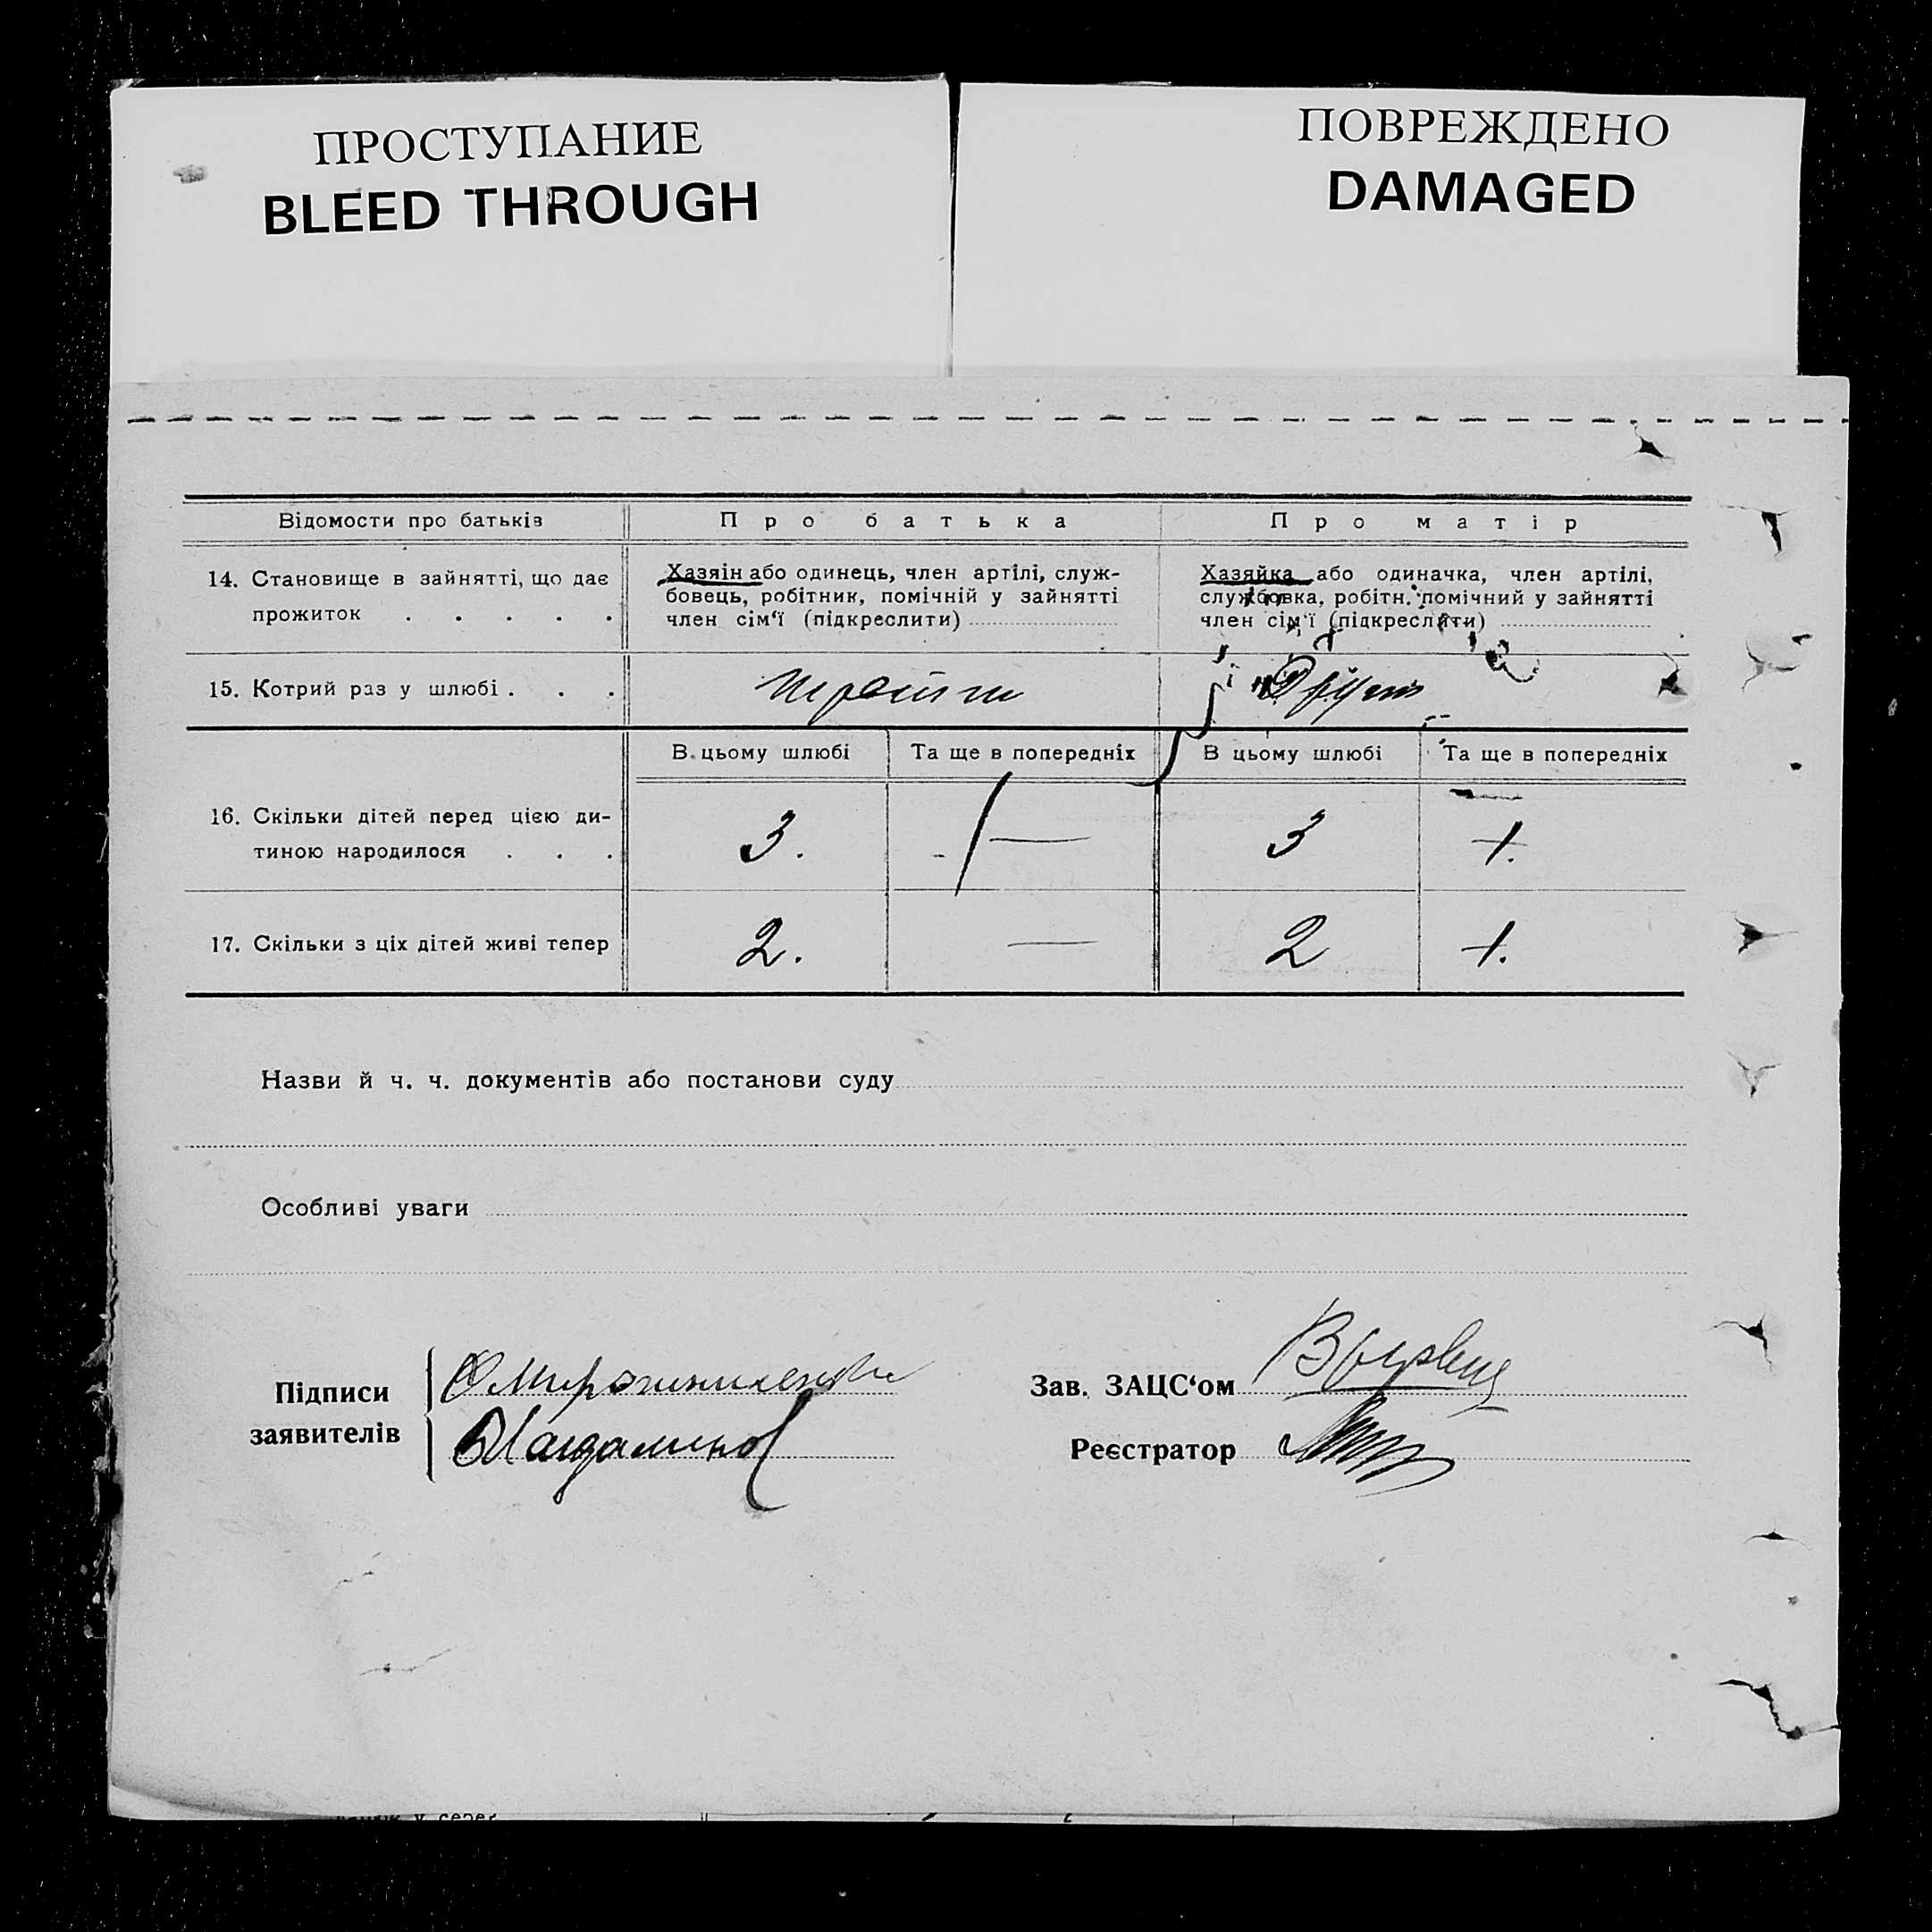 ПРОСТУПАНИЕ
BLEED THROUGH
ПОВРЕЖДЕНО
DAMAGED
Відомости про батьків
Про батька
Про матір
14. Становище в зайнятті, що дає
прожиток . . . . .
Хазяін або одинець, член артілі, служ-
бовець, робітник, помічній у зайнятті
член сім'ї (підкреслити)
Хазяйка або одиначка, член артілі,
службовка, робітн. помічний у зайнятті
член сім'ї (підкреслити)
15. Котрий раз у шлюбі . . .
третій
Другий
В цьому шлюбі
Та ще в попередніх
В цьому шлюбі
Та ще в попередніх
16. Скільки дітей перед цією ди-
тиною народилося . . .
3. — 3 1.
17. Скільки з ціх дітей живі тепер
2. — 2 1.
Назви й ч. ч. документів або постанови суду
Особливі уваги
Підписи
заявителів
Зав. ЗАЦС'ом
Реєстратор